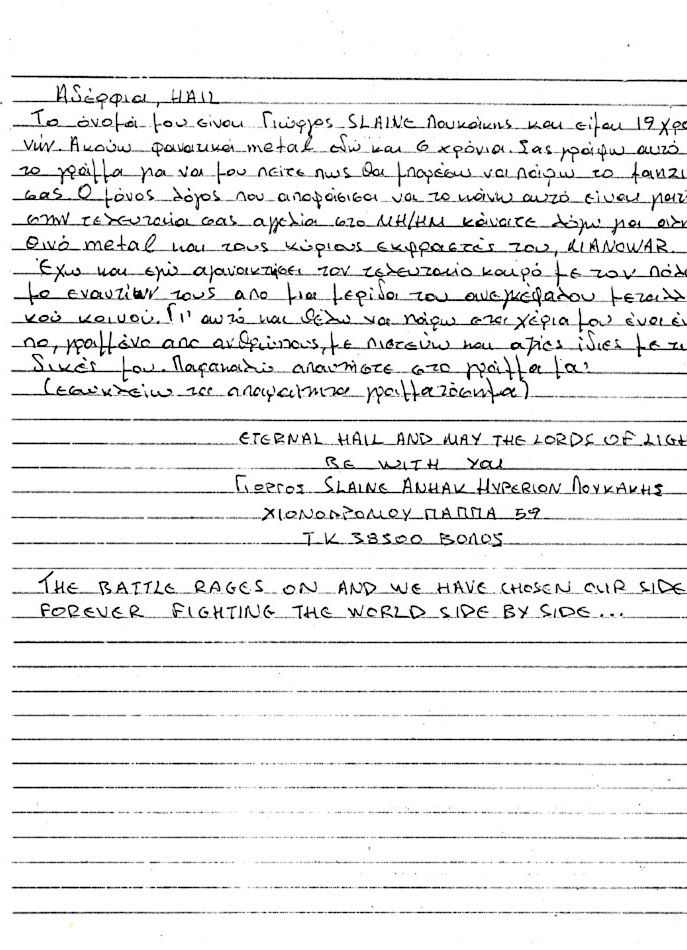 Αδέρφια, HAIL
Το όνομά μου είναι Γιώργος SLAINE Λουκάκης και είμαι 19 χρο
νών. Ακούω φανατικά metal εδώ και 6 χρόνια. Σας γράφω αυτό
το γράμμα για να μου πείτε πως θα μπορέσω να πάρω το φανζι
σας. Ο μόνος λόγος που αποφάσισα να το κάνω αυτό είναι γιατ
στην τελευταία σας αγγελία στο MH/HM κάνατε λόγω για αλη
θινό metal και τους κύριους εκφραστές του, MANOWAR.
Έχω και εγώ αγανακτήσει τον τελευταίο καιρό με τον πόλε
μο εναντίων τους απο μια μερίδα του ανεγκέφαλου μεταλλ
κού κοινού. Γι' αυτό και θέλω να πάρω στα χέρια μου ένα έν
πο, γραμμένο απο ανθρώπους, με πιστεύω και αξίες ίδιες με τι
δικές μου. Παρακαλώ απαντήστε στο γράμμα μα!
(εσωκλείω τα απαραίτητα γραμματόσημα)
ETERNAL HAIL AND MAY THE LORDS OF LIGH
BE WITH YOU
ΓΙΩΡΓΟΣ SLAINE ANHAK HYPERION ΛΟΥΚΑΚΗΣ
ΧΙΟΝΟΔΡΟΜΟΥ ΠΑΠΠΑ 59
Τ.Κ 38500 ΒΟΛΟΣ
THE BATTLE RAGES ON AND WE HAVE CHOSEN OUR SIDE
FOREVER FIGHTING THE WORLD SIDE BY SIDE...